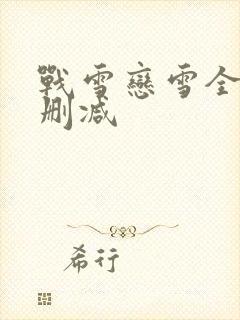 戰雪戀雪全
刪減
希行